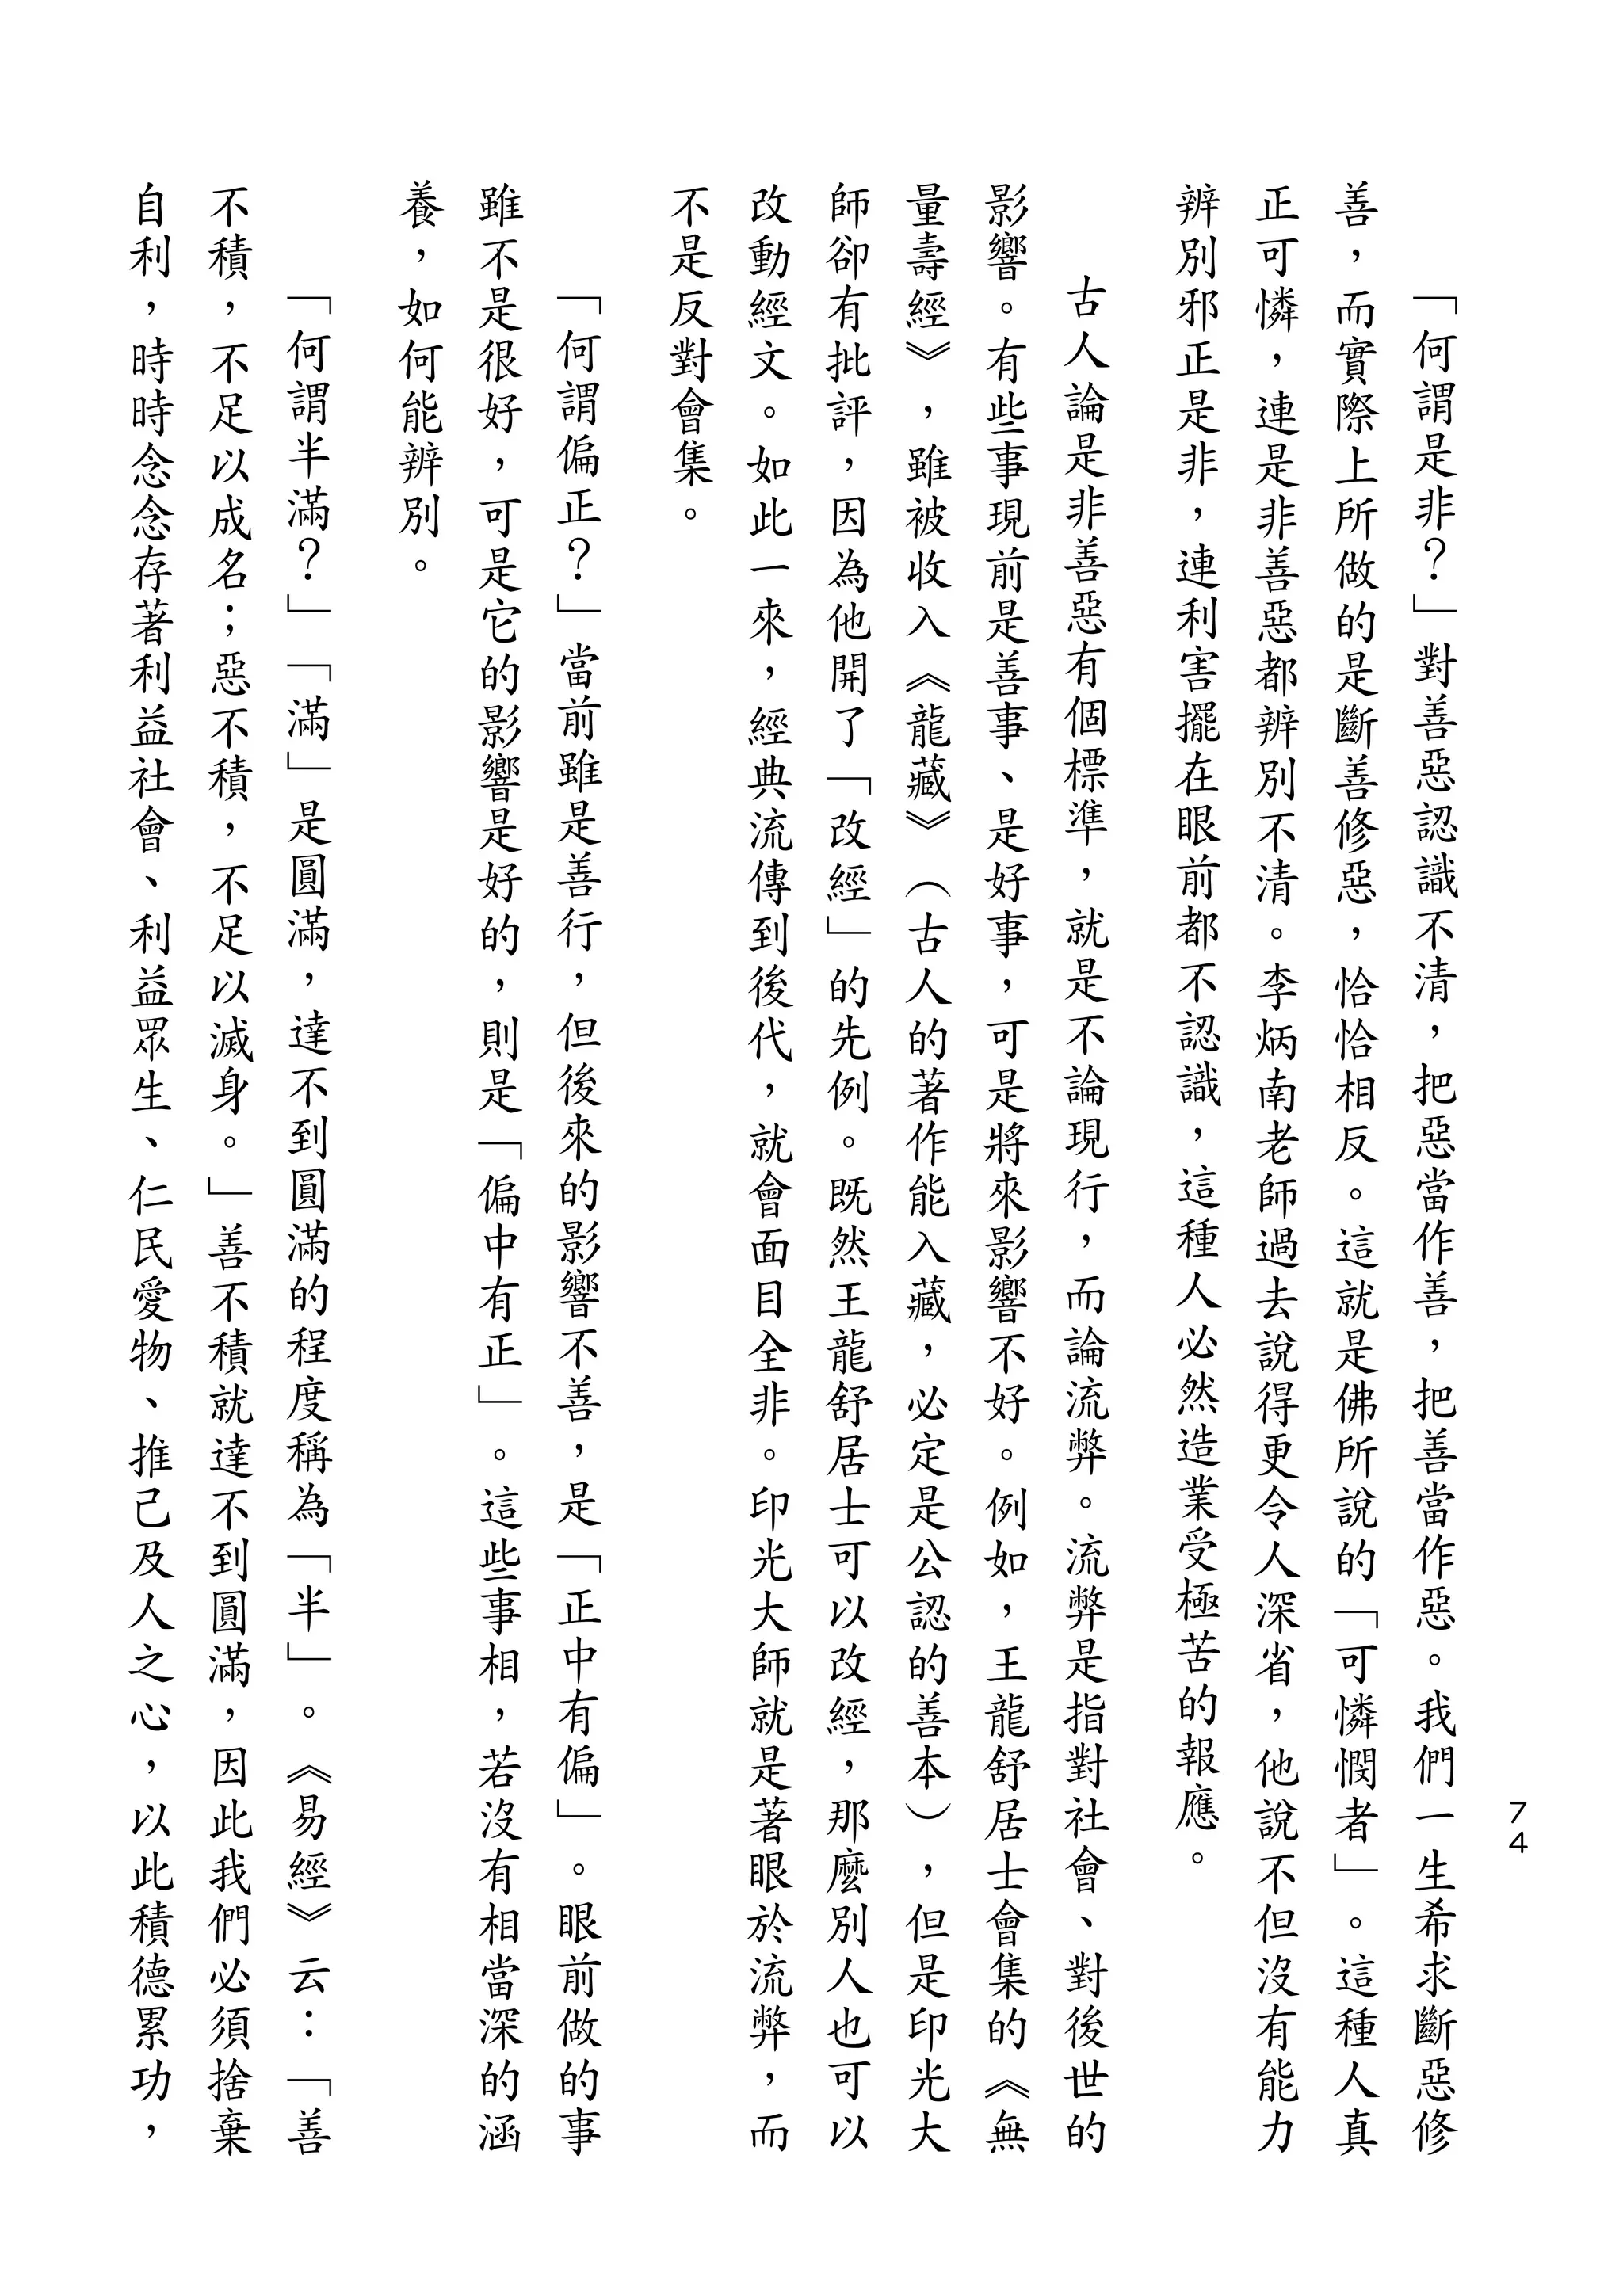 74
「何謂是非？」對善惡認識不清，把惡當作善，把善當作惡。我們一生希求斷惡修
善，而實際上所做的是斷善修惡，恰恰相反。這就是佛所說的「可憐憫者」。這種人真
正可憐，連是非善惡都辨別不清。李炳南老師過去說得更令人深省，他說不但沒有能力
辨別邪正是非，連利害擺在眼前都不認識，這種人必然造業受極苦的報應。
古人論是非善惡有個標準，就是不論現行，而論流弊。流弊是指對社會、對後世的
影響。有些事現前是善事、是好事，可是將來影響不好。例如，王龍舒居士會集的《無
量壽經》，雖被收入《龍藏》（古人的著作能入藏，必定是公認的善本），但是印光大
師卻有批評，因為他開了「改經」的先例。既然王龍舒居士可以改經，那麼別人也可以
改動經文。如此一來，經典流傳到後代，就會面目全非。印光大師就是著眼於流弊，而
不是反對會集。
「何謂偏正？」當前雖是善行，但後來的影響不善，是「正中有偏」。眼前做的事
雖不是很好，可是它的影響是好的，則是「偏中有正」。這些事相，若沒有相當深的涵
養，如何能辨別。
「何謂半滿？」「滿」是圓滿，達不到圓滿的程度稱為「半」。《易經》云：「善
不積，不足以成名；惡不積，不足以滅身。」善不積就達不到圓滿，因此我們必須捨棄
自利，時時念念存著利益社會、利益眾生、仁民愛物、推己及人之心，以此積德累功，